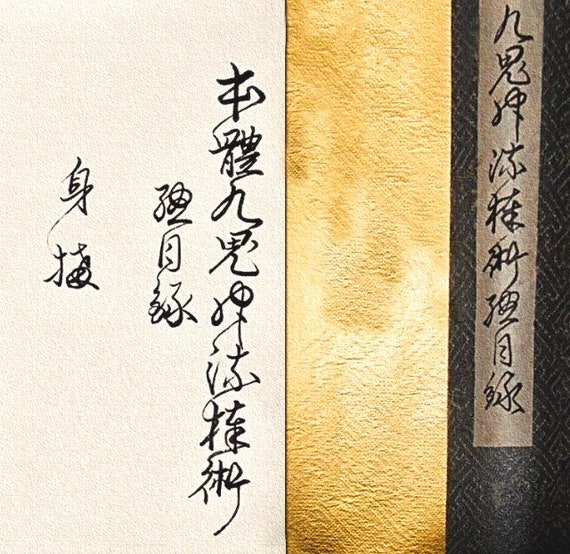 九鬼神流棒術総目録
本體九鬼神流棒術
総目録
身構